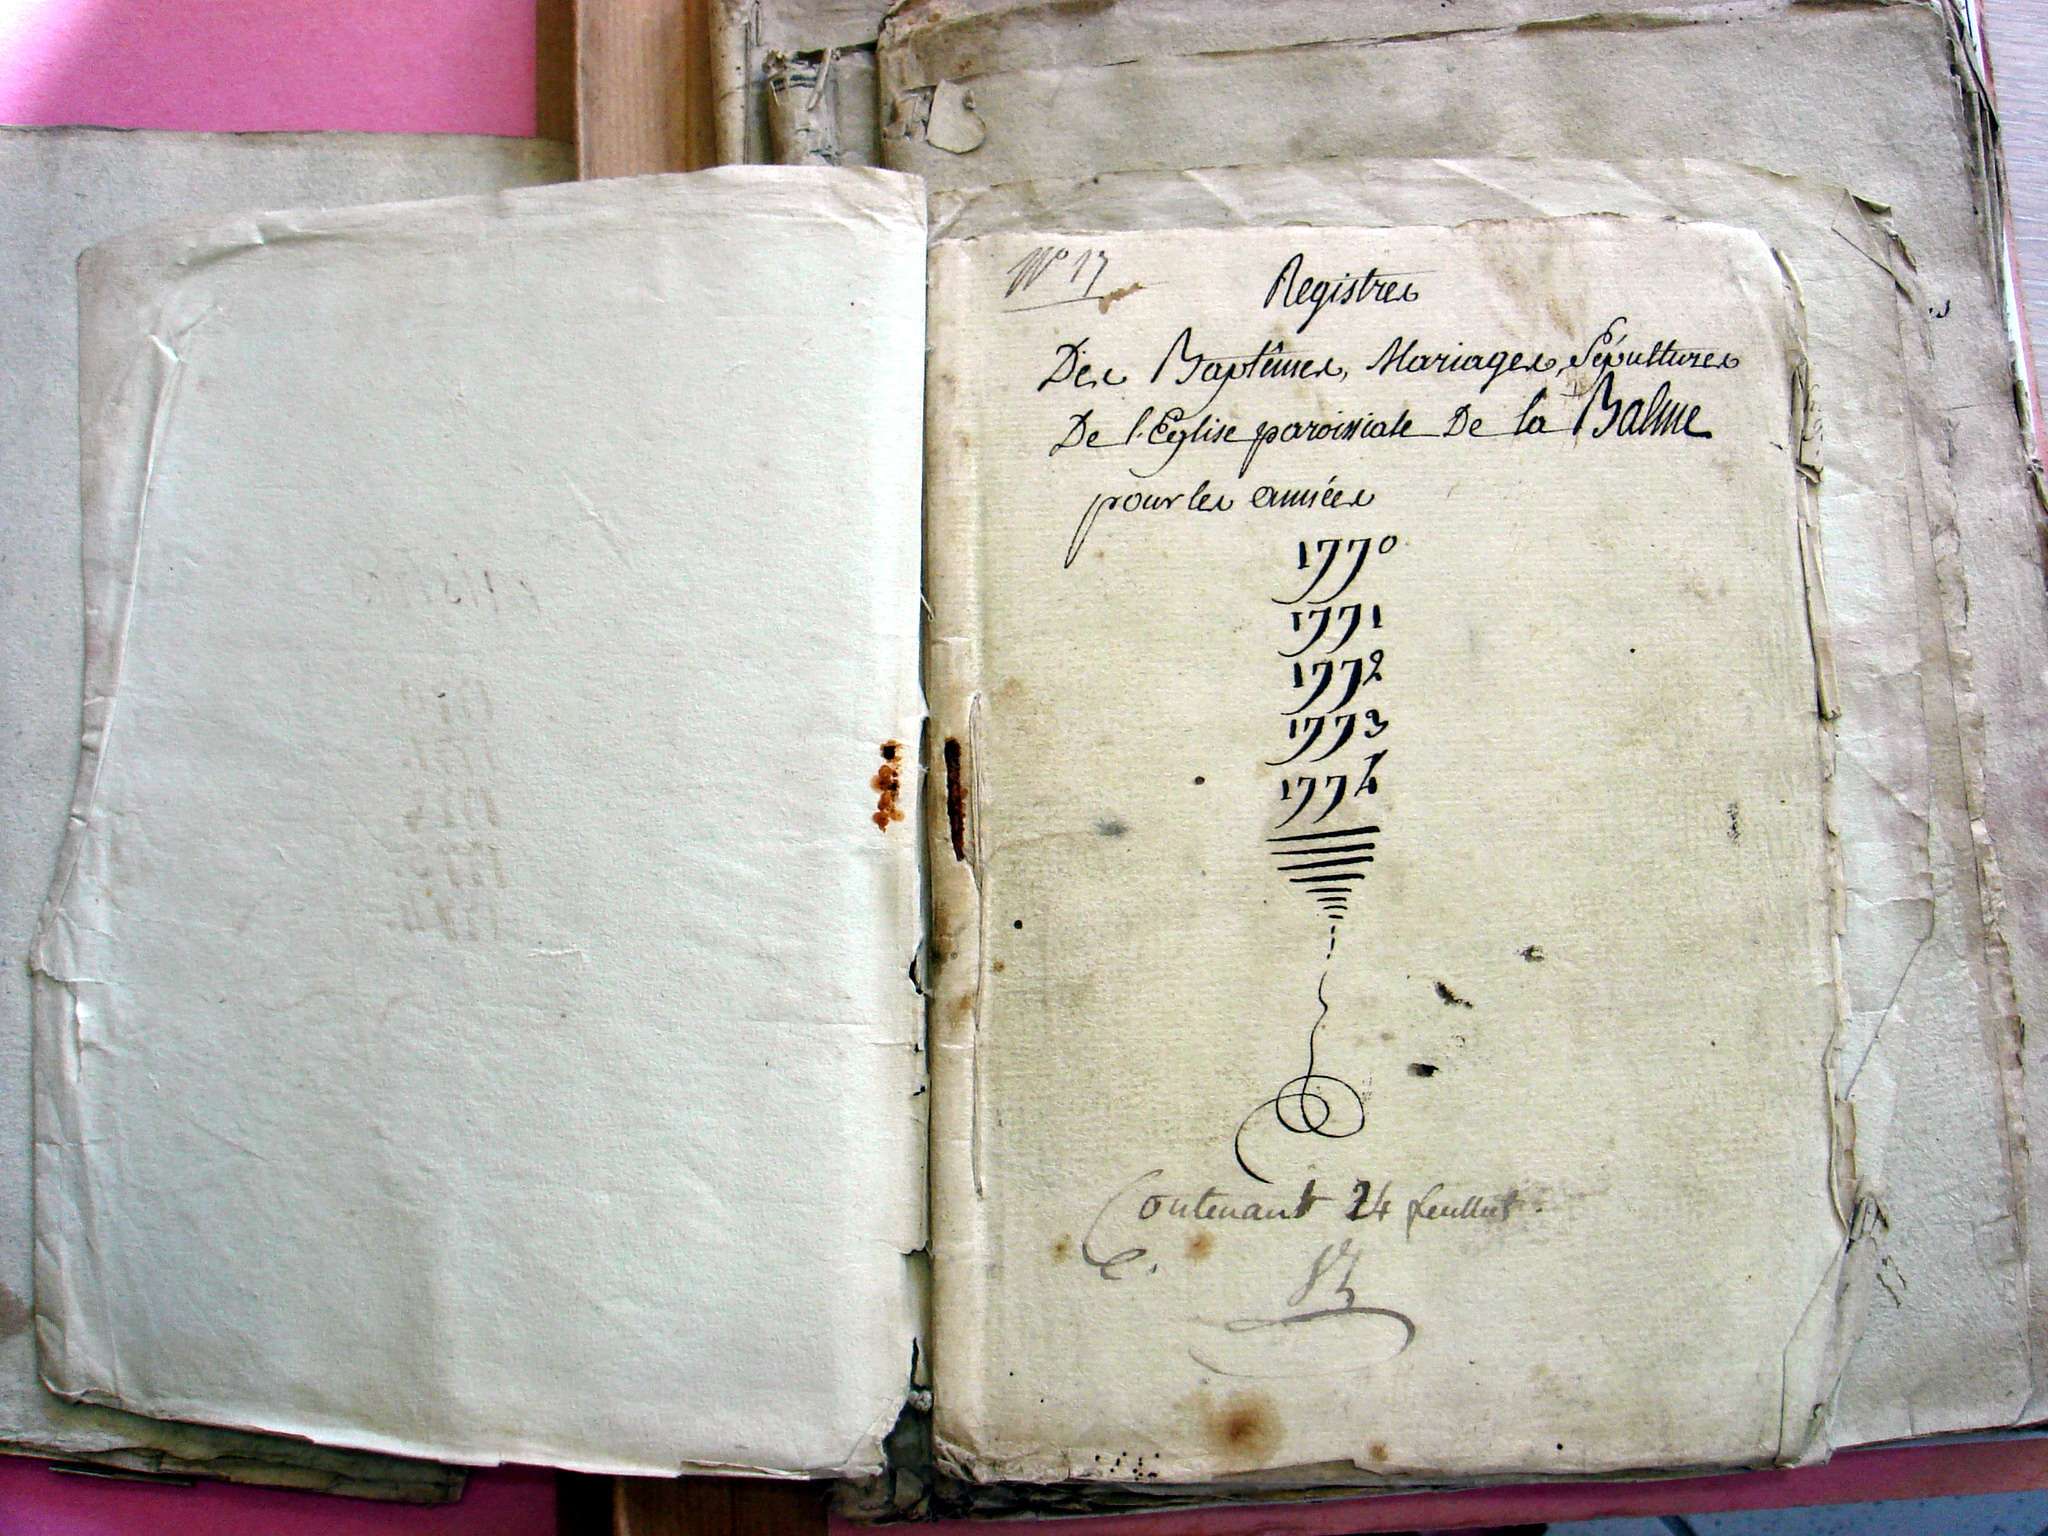 N° 17
Registres
Des Baptêmes, Mariages, Sépultures
De l'Eglise paroissiale De la Balme
pour les années
1770
1771
1772
1773
1774
Contenant 24 feuillets